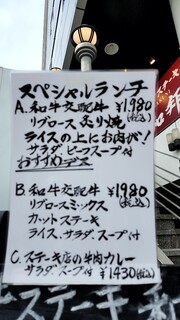 スペシャルランチ
A. 和牛交配牛 ¥1,980
(税込)
リブロース炙り焼
ライスの上にお肉が!
サラダ、ビーフスープ付
おすすめデス
B. 和牛交配牛 ¥1980
(税込)
リブロースミックス
カットステキ
ライス、サラダ、スープ付
C. ステーキ店の牛肉カレー
サラダ、スープ付 ¥1430(税込)
ステーキ